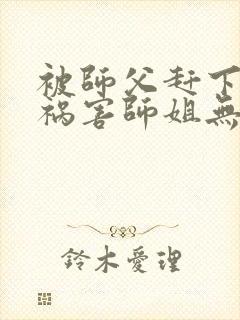 被師父赶下
祸害師姐無
鈴木愛理